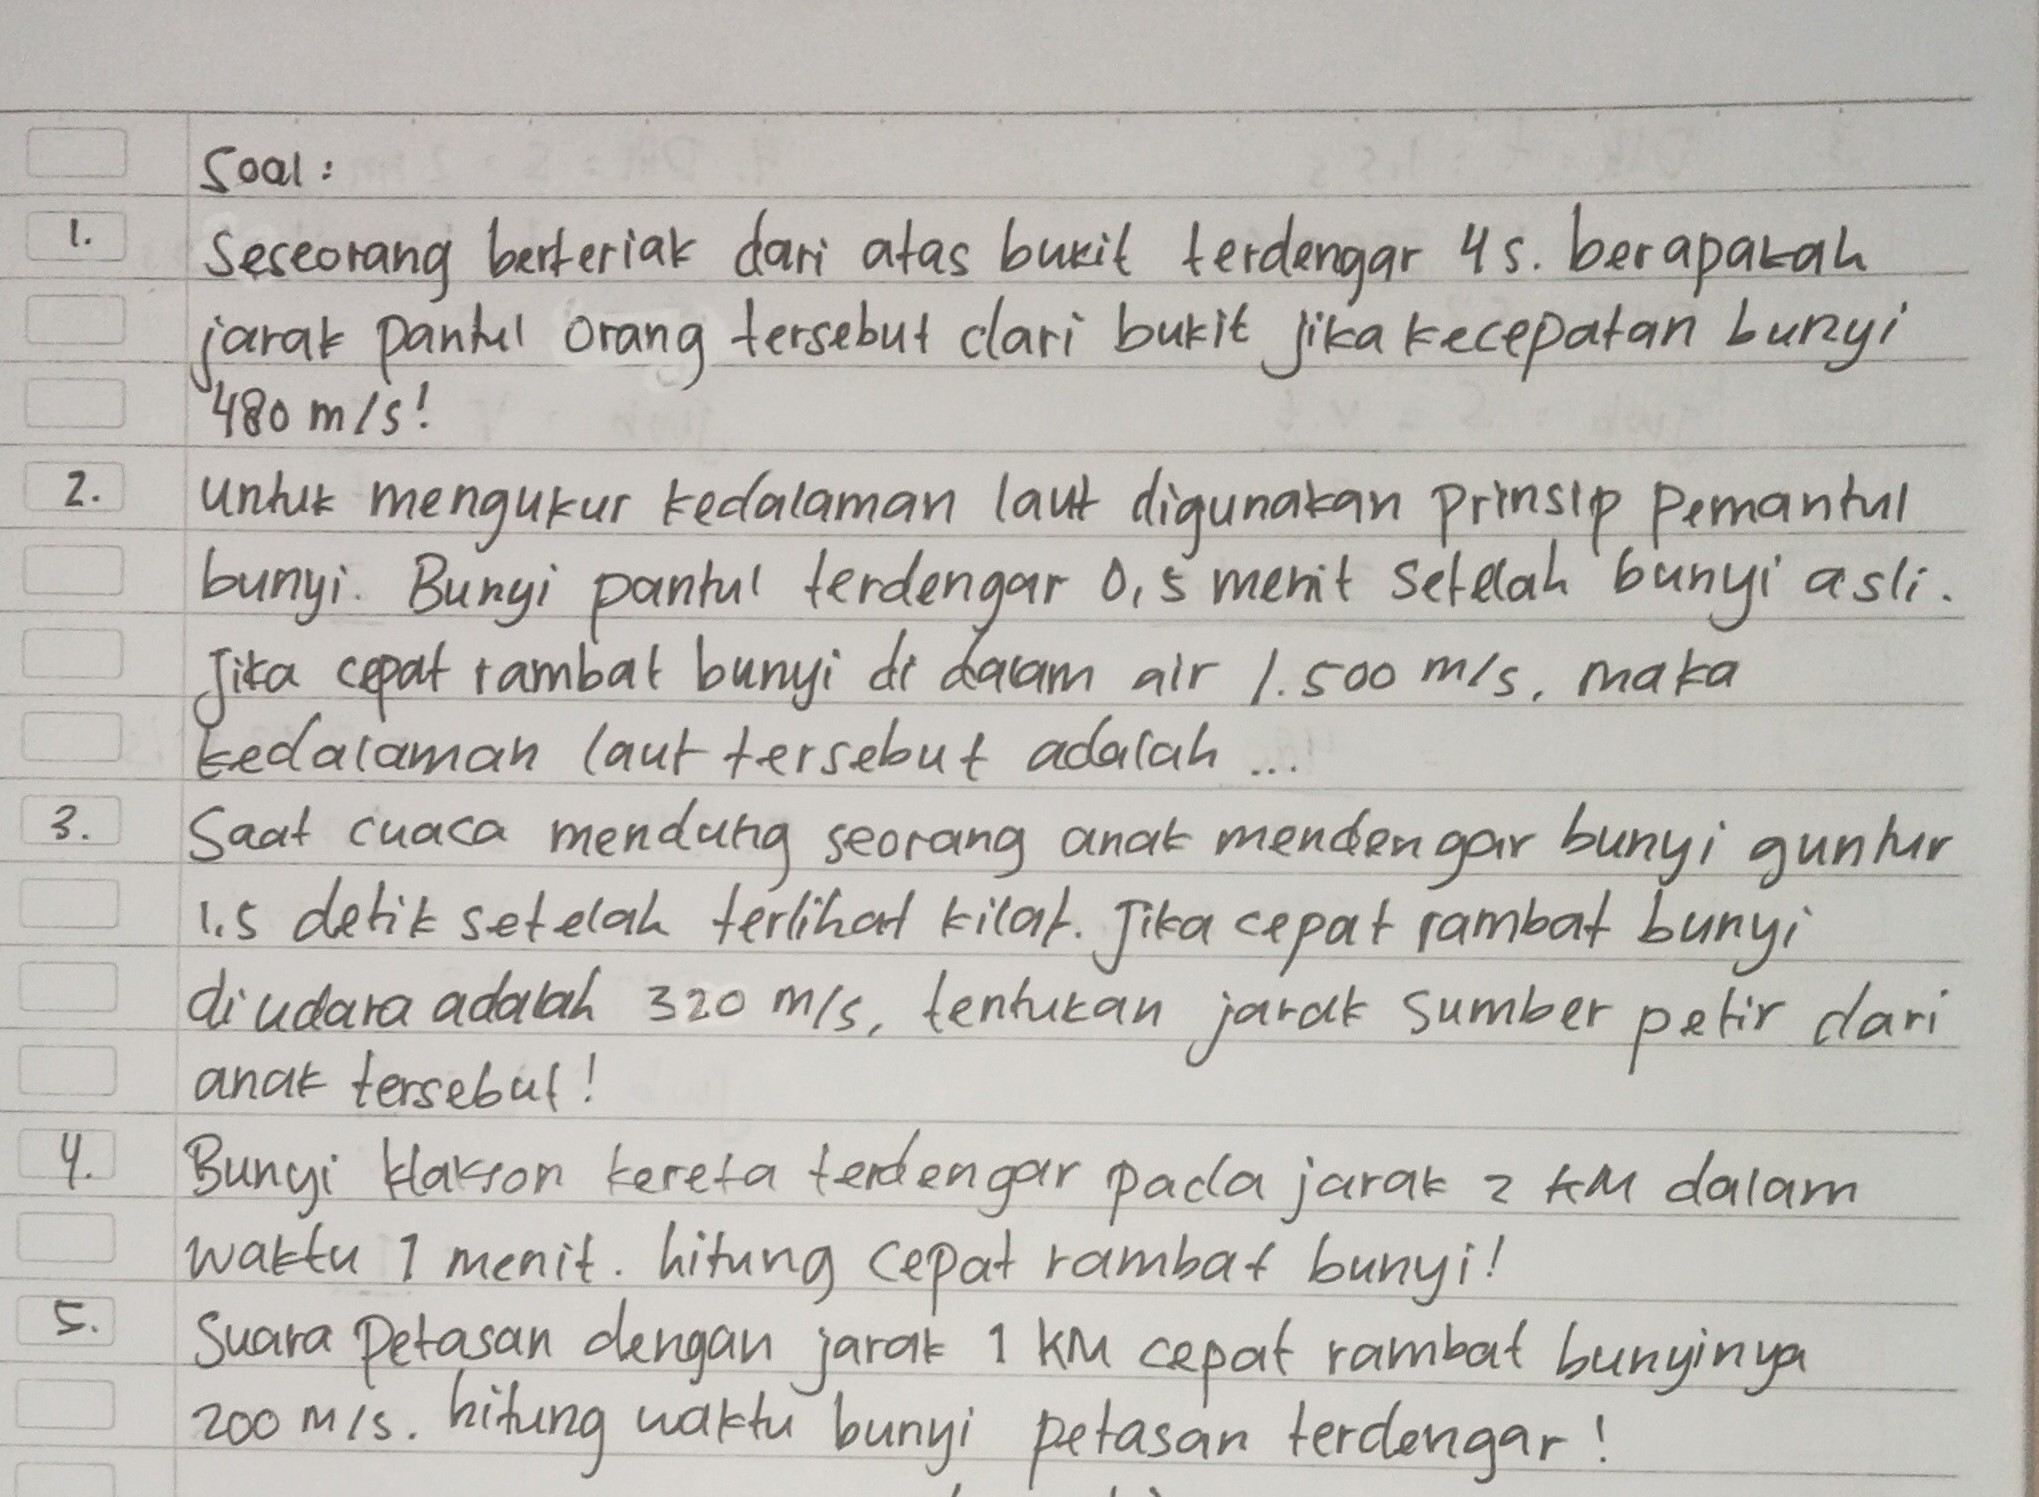 Soal :
1. Seseorang berteriak dari atas bukit terdengar 4 s. berapakah
jarak pantul orang tersebut dari bukit jika kecepatan bunyi
480 m/s!
2. Untuk mengukur kedalaman laut digunakan prinsip pemantul
bunyi. Bunyi pantul terdengar 0,5 menit setelah bunyi asli.
Jika cepat rambat bunyi di dalam air 1.500 m/s, maka
kedalaman laut tersebut adalah ...
3. Saat cuaca mendung seorang anak mendengar bunyi guntur
1,5 detik setelah terlihat kilat. Jika cepat rambat bunyi
di udara adalah 320 m/s, tentukan jarak sumber petir dari
anak tersebut!
4. Bunyi klakson kereta terdengar pada jarak 2 KM dalam
waktu 1 menit. hitung cepat rambat bunyi!
5. Suara petasan dengan jarak 1 KM cepat rambat bunyinya
200 m/s. hitung waktu bunyi petasan terdengar!